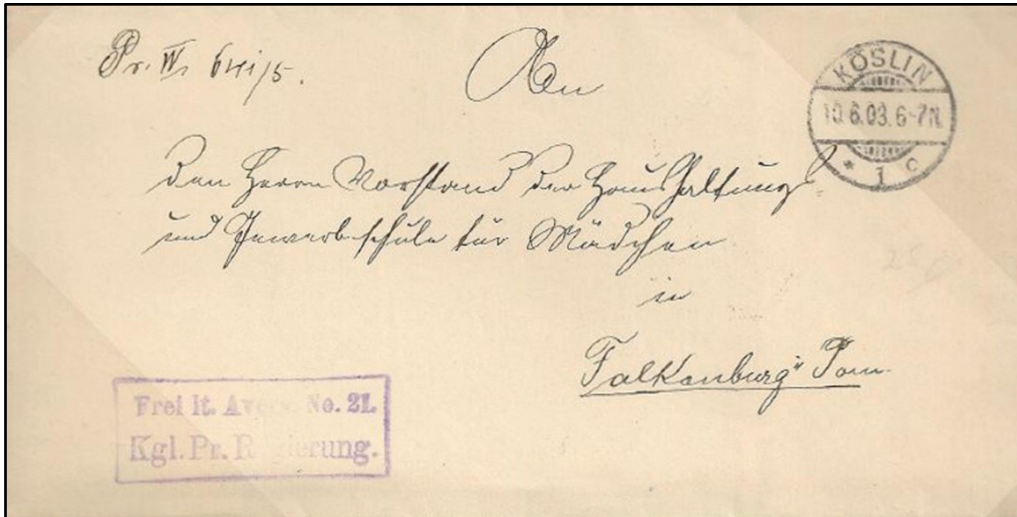 Pr. IV.
An
KÖSLIN
10.6.03.6-7N.
* 1 c
den Herrn Vorstand der Haushaltungs-
und Gewerbeschule für Mädchen
in
Falkenburg i/ Pom.
Frei lt. Avers. No. 21.
Kgl. Pr. Regierung.